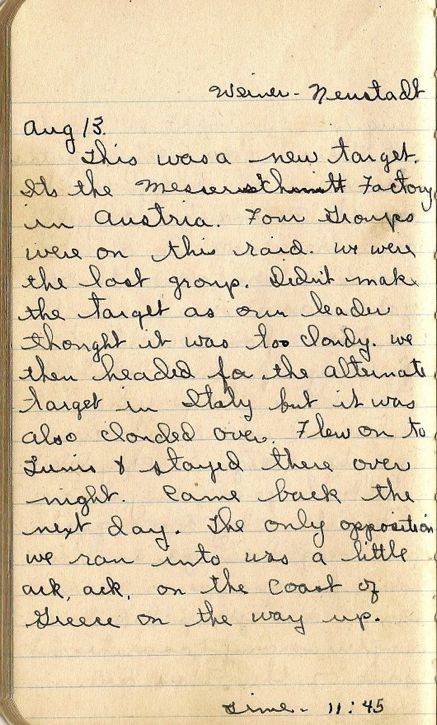 Weiner - Neustadt
Aug 13.
This was a new target.
Its the Messersthmitt Factory
in Austria. Four Groups
were on this raid. We were
the last group. Didn't make
the target as our leader
thought it was too cloudy. We
then headed for the alternate
target in Italy but it was
also clouded over. Flew on to
Tunis & stayed there over
night. Came back the
next day. The only opposition
we ran into was a little
ack, ack, on the coast of
Greece on the way up.
Time - 11:45